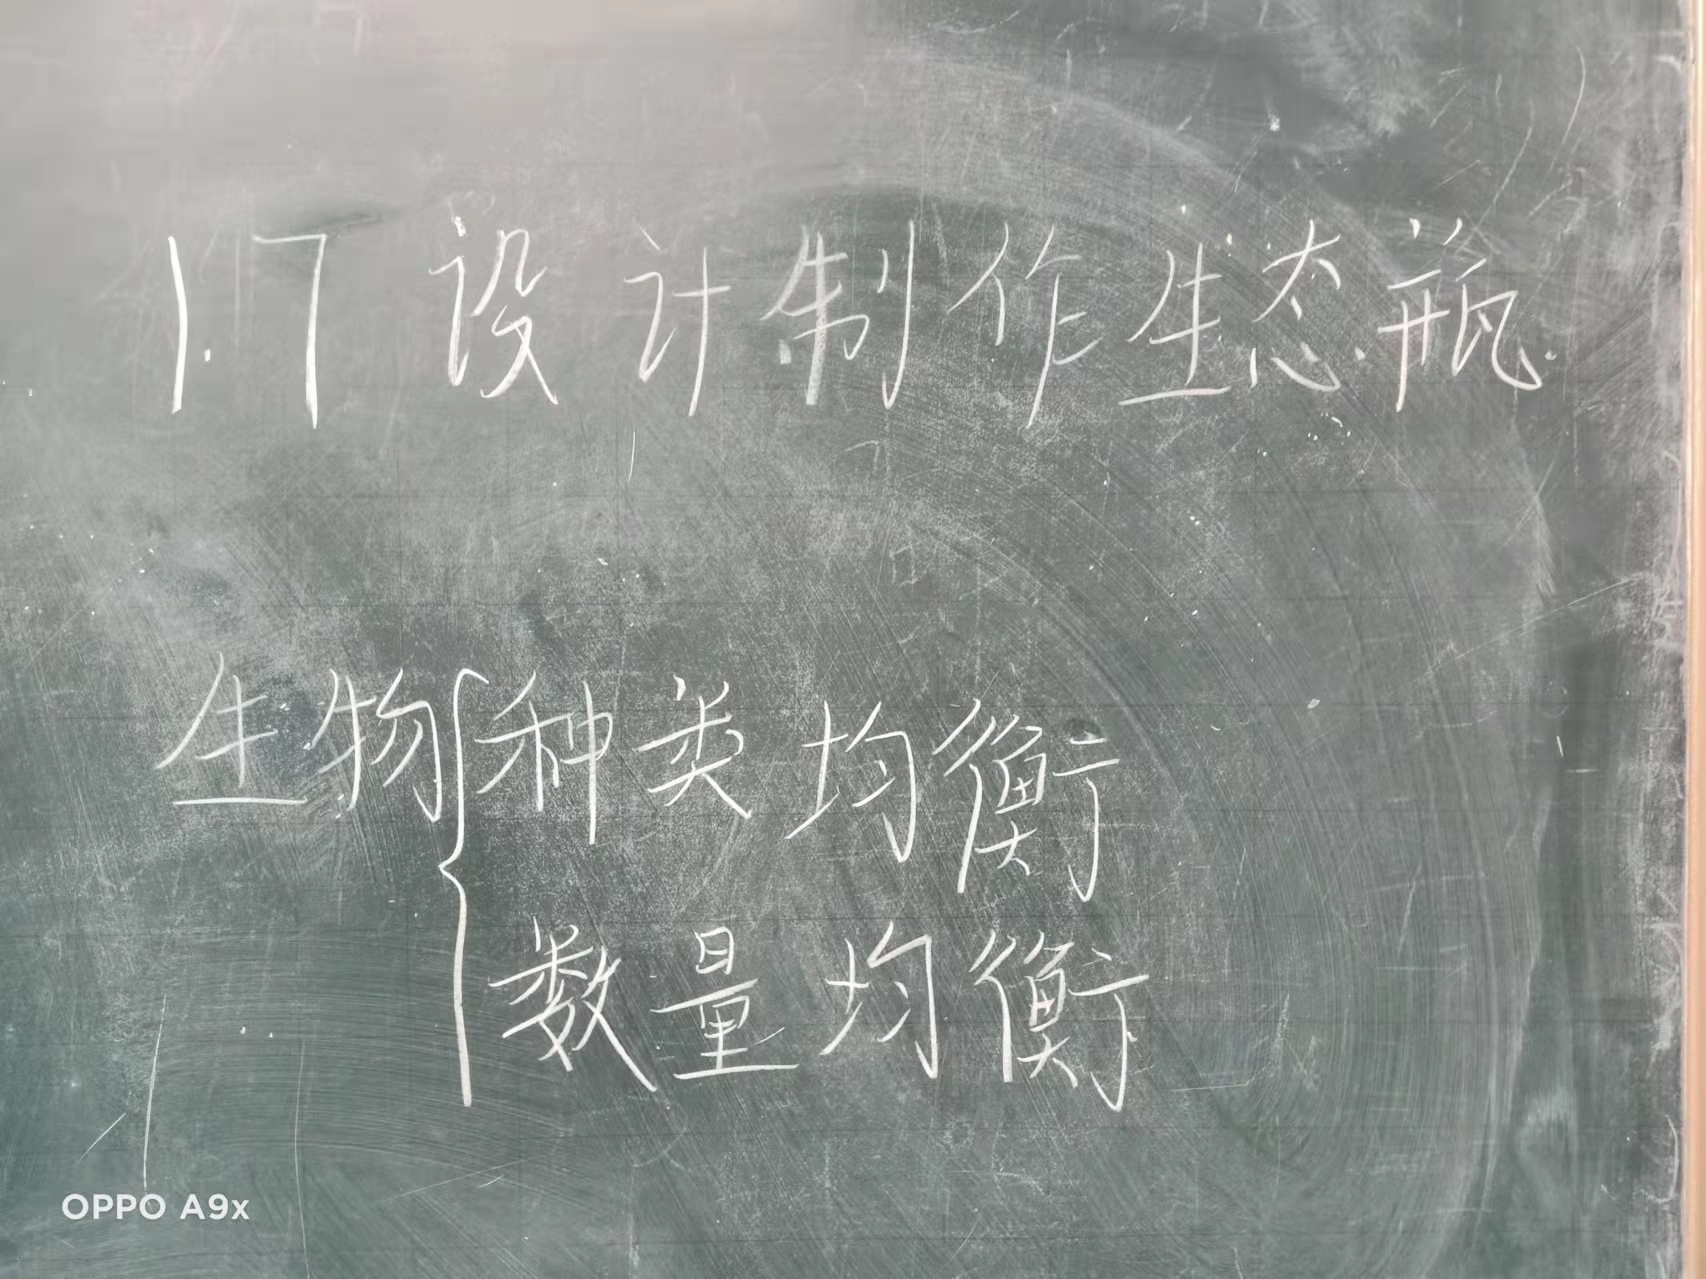 1.7 设计制作生态瓶
生物{种类均衡
数量均衡
OPPO A9x